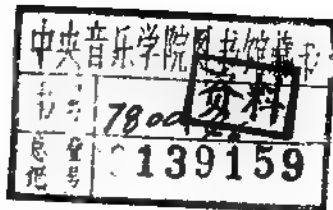 中央音乐学院图书馆藏书
书号 780
资料
总登记号 139159